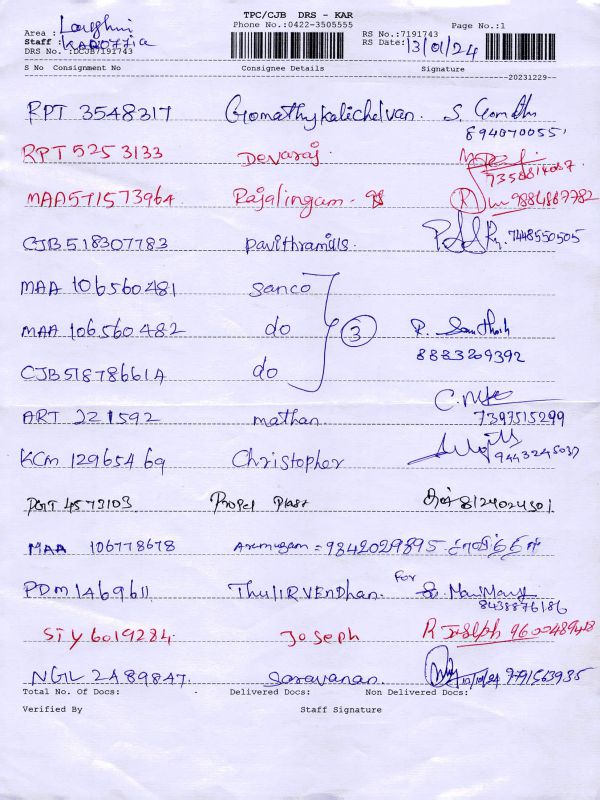 TPC/CJB DRS - KAR
Phone No.:0422-3505555
Area :
Staff : KAROTTIA
DRS No. :DCJB7191743
RS No.:7191743
RS Date: 13/01/24
Page No.:1
S No Consignment No Consignee Details Signature
20231229--
RPT 3548317 Gomathykalichelvan. S. 894070055
RPT 5253133 Devaraj. 7358814067
MAA571573964 Rajalingam. 9884867782
CJB518307783 pavithramills. 7448550505
MAA 106560481 sanco
MAA 106560482 do 3 R. Santhosh
8883209392
CJB51878661A do
ART 221592 mathan. 7397515299
KCM 12965469 Christopher 9443245037
4573103 Propel Plast 8124024301
MAA 106778678 Aremugam = 9842029895
PDM 1469611 ThulIRVEndhan. For
8438876186
STY 6019284. Joseph R Joseph 9600489428
NGIL 2A89847. Saravanan. 9791563935
Total No. Of Docs: - Delivered Docs: Non Delivered Docs:
Verified By Staff Signature